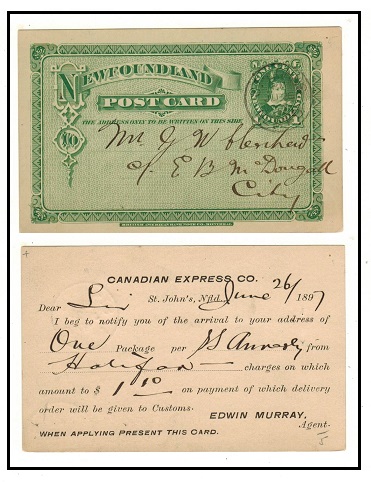 NEWFOUNDLAND
POST CARD
THE ADDRESS ONLY TO BE WRITTEN ON THIS SIDE
TO
Mr. J W
c/. E B McDougall
City
CANADIAN EXPRESS CO.
St. John's, Nfld. June 26/ 1897
Dear Sir
I beg to notify you of the arrival to your address of
One Package per SS from
Halifax charges on which
amount to $ 1.10 on payment of which delivery
order will be given to Customs.
EDWIN MURRAY,
Agent.
WHEN APPLYING PRESENT THIS CARD.